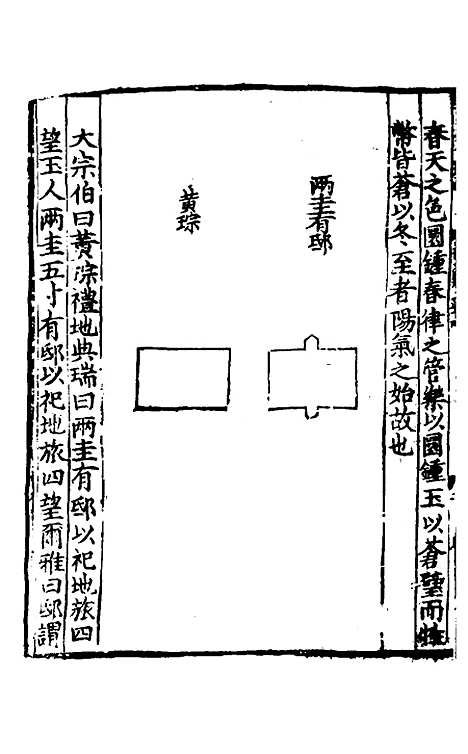 春天之色圜鍾春律之管樂以圜鍾玉以蒼璧而牲
幣皆蒼以冬至者陽氣之始故也
兩圭有邸
黃琮
大宗伯曰黃琮禮地典瑞曰兩圭有邸以祀地旅四
望玉人兩圭五寸有邸以祀地旅四望爾雅曰邸謂